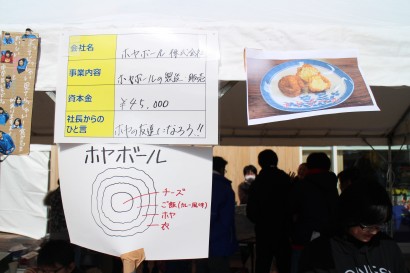 会社名 ホヤボール 株式会社
事業内容 ホヤボールの製造 販売
資本金 ¥45,000
社長からの
ひと言 ホヤの友達になろう!!
ホヤボール
チーズ
ご飯(カレー風味)
ホヤ
衣